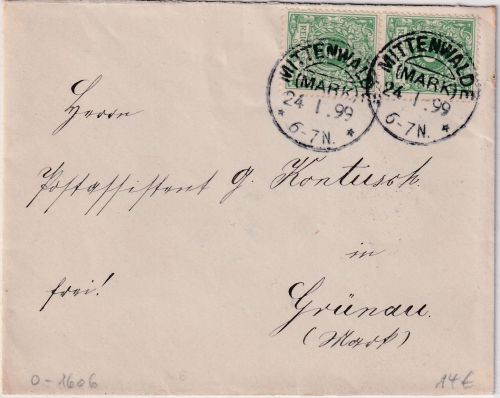 MITTENWALDE
(MARK)
24 1.99
* 6-7N. *
MITTENWALDE
(MARK)
24 1.99
* 6-7N. *
Herrn
Postassistent G. Kontusch
in
frei!
Grünau.
(Mark)
0-1606
14€